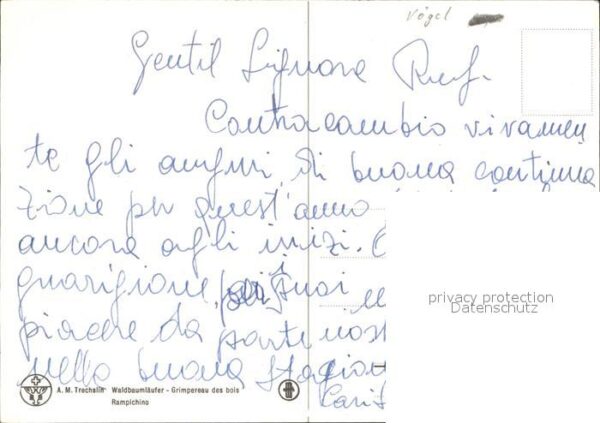 Vögel
Gentil Signora Ruf.
Contracambio vivamen
te gli auguri di buona continua
zione per quest'anno
ancora agli inizi.
guarigione, per i Suoi
piacere da parte nost
nella buona stagion
Cari
privacy protection
Datenschutz
A. M. Trechslin Waldbaumläufer - Grimpereau des bois
Rampichino